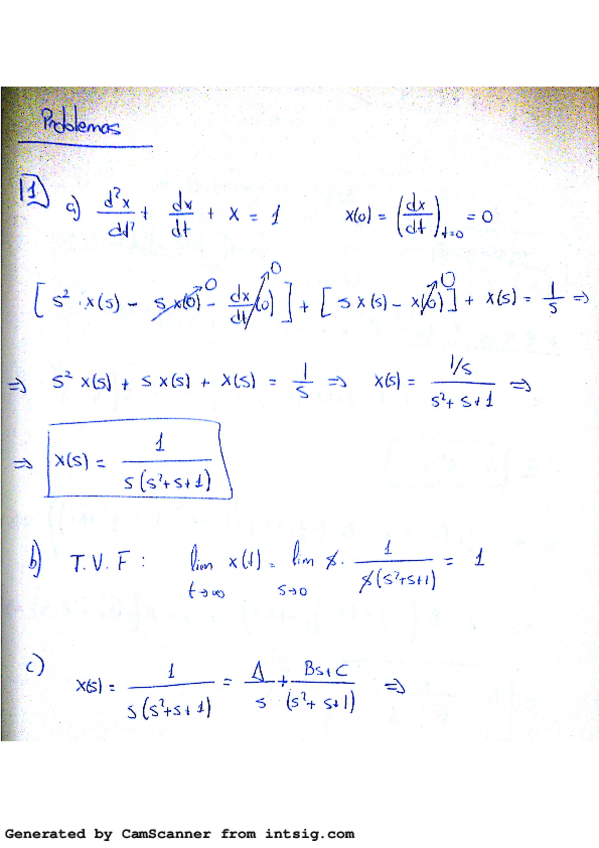 Problemas
1 a) d²x/dt² + dx/dt + x = 1    x(0) = (dx/dt)t=0 = 0
[s² · x(s) - s x(0) 0 - dx/dt (0) 0] + [s x(s) - x(0) 0] + x(s) = 1/s ⇒
⇒ s² x(s) + s x(s) + x(s) = 1/s ⇒ x(s) = (1/s)/(s² + s + 1) ⇒
⇒ x(s) = 1/(s(s² + s + 1))
b) T.V.F : lim t→∞ x(t) = lim s→0 s · 1/(s(s² + s + 1)) = 1
c) x(s) = 1/(s(s² + s + 1)) = A/s + (Bs + C)/(s² + s + 1) ⇒
Generated by CamScanner from intsig.com